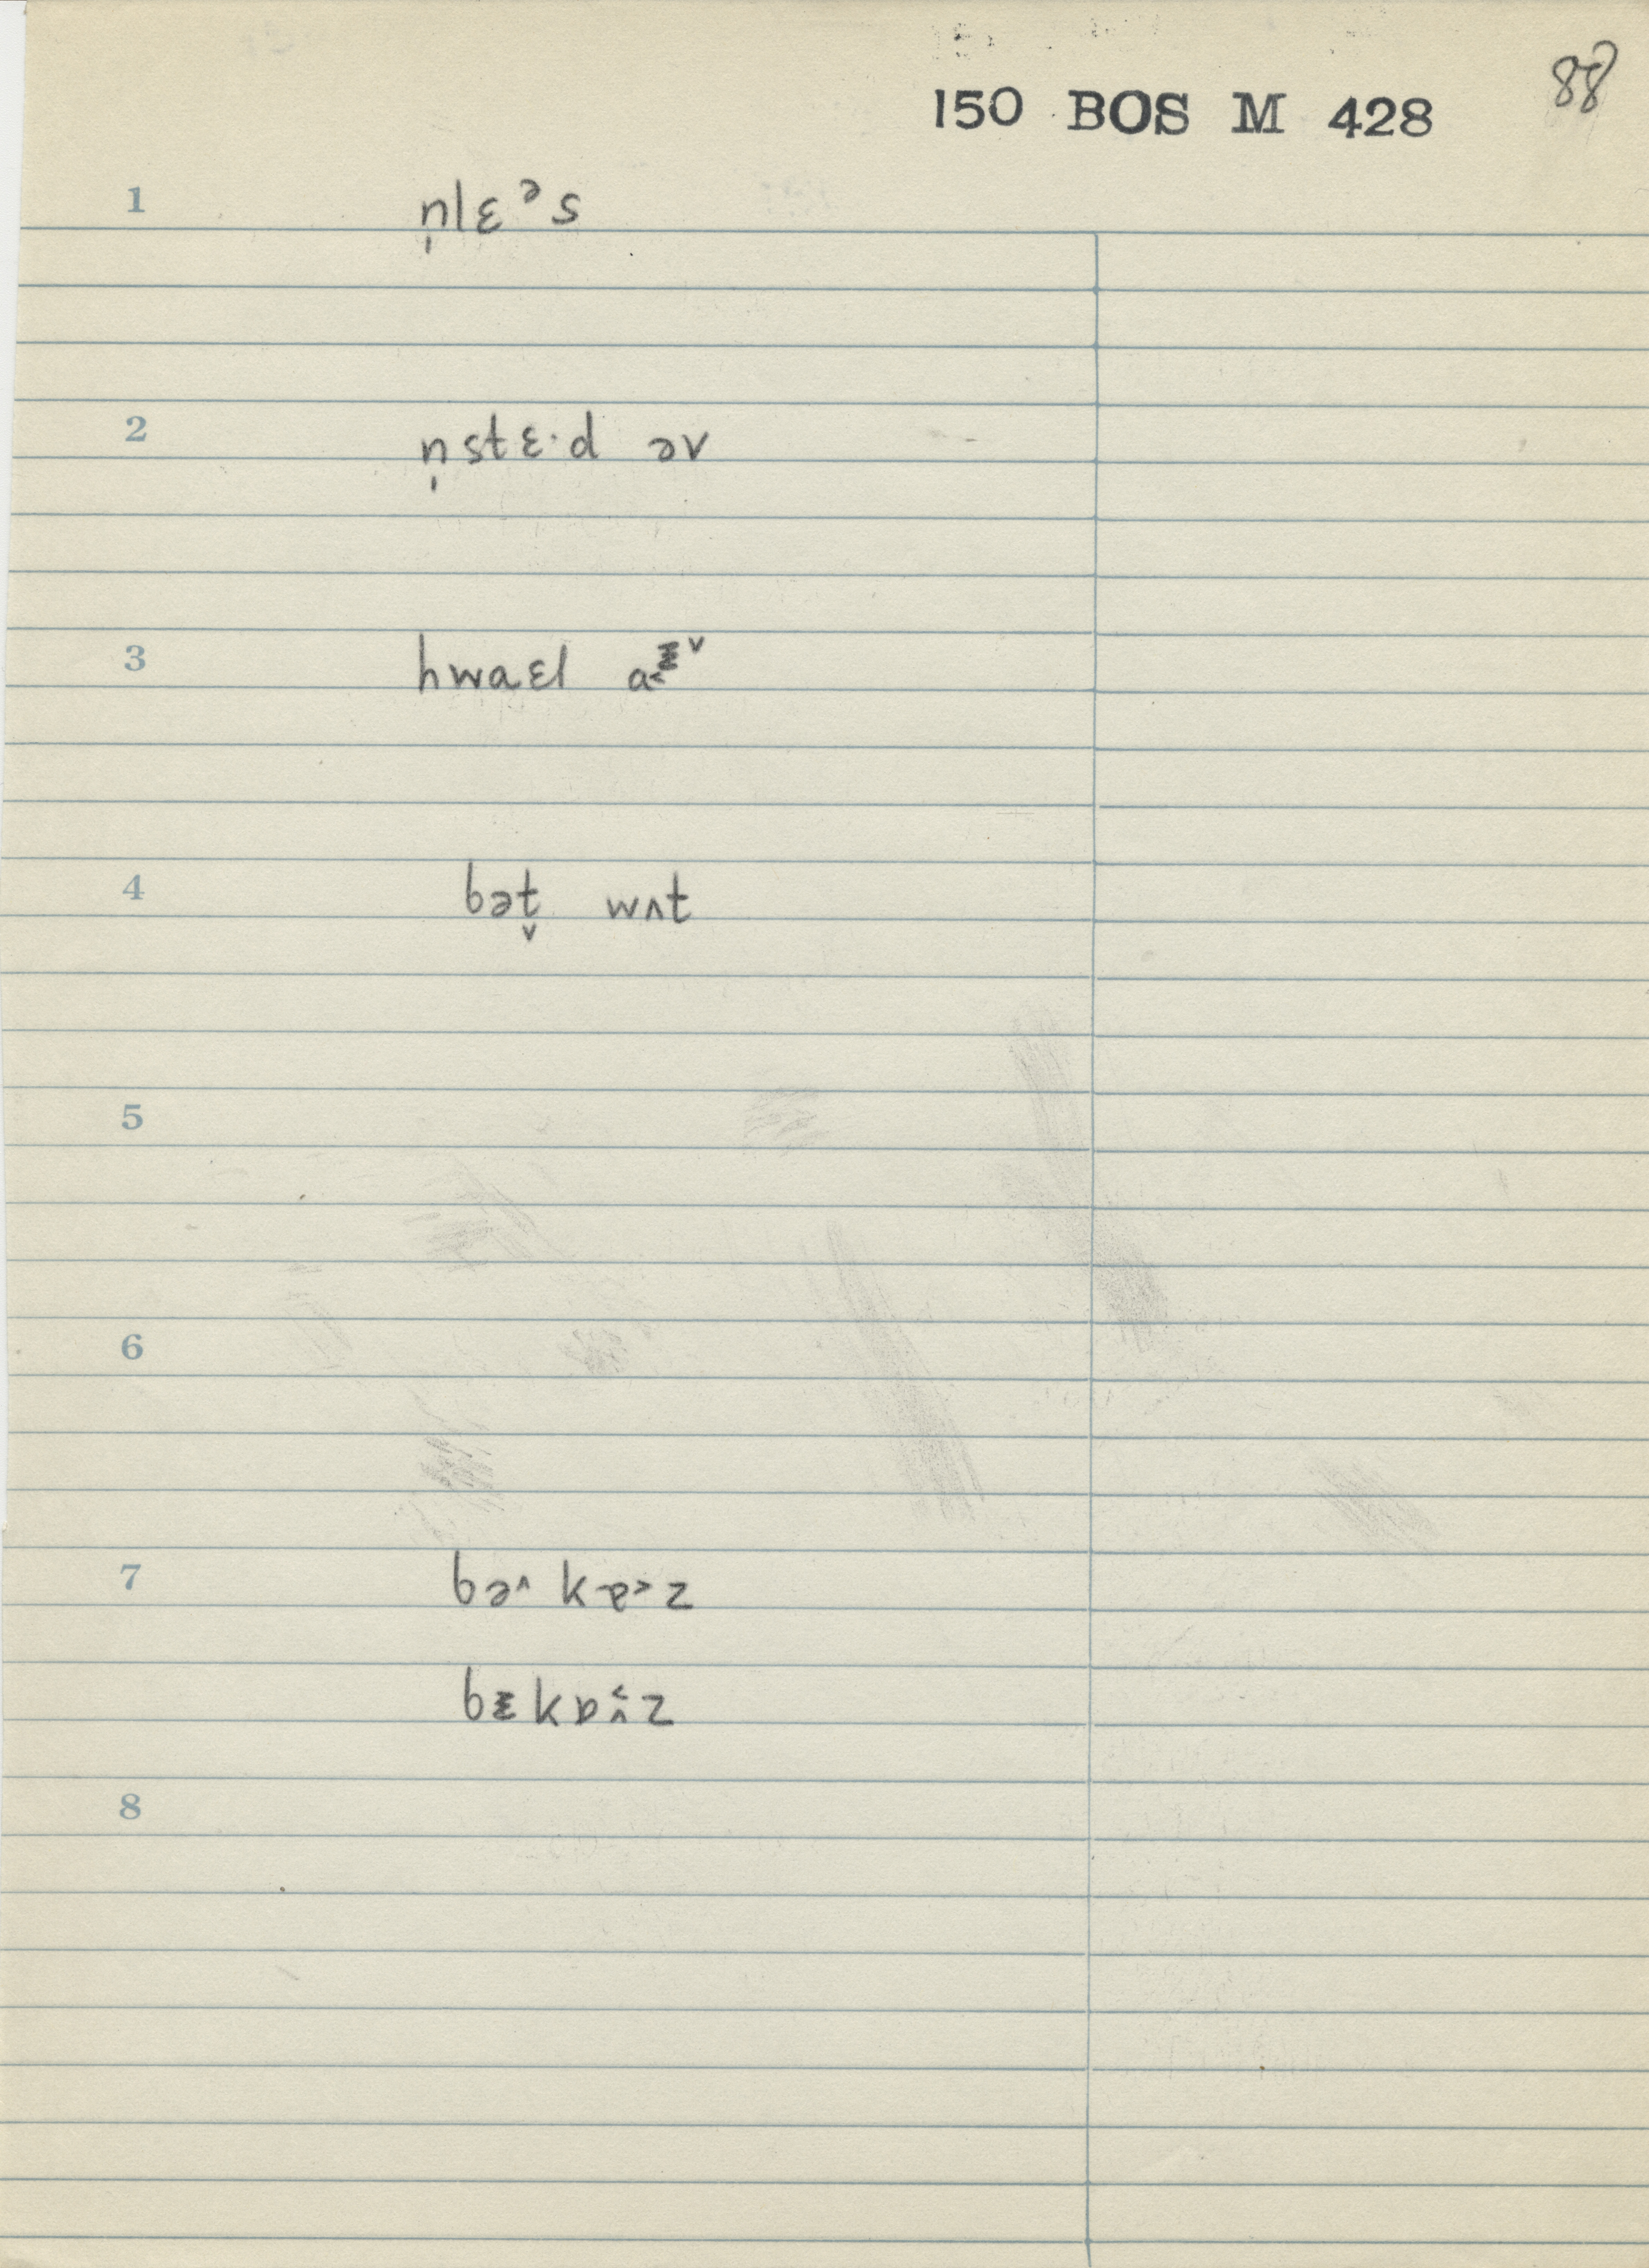 88
150 BOS M 428
1 n̩lɛᵊs
2 n̩stɛ·d əv
3 hwaɛl
4 bət̬ wʌt
5
6
7 bə˄ kɐ˃z
bᵻkɒ̭z
8